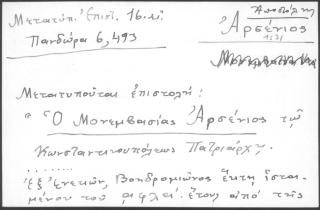 Μετατύπ. Ἐπιστ. 16. αἰ
Πανδώρα 6, 493
Ἀποστόλης
Ἀρσένιος
Μετατυποῦται ἐπιστολή:
"Ὁ Μονεμβασίας Ἀρσένιος τῷ
Κωνσταντινουπόλεως Πατριάρχῃ.
........
Ἐξ Ἑνετιῶν, Βοηδρομιῶνος ἕκτῃ ἱστα-
μένου τοῦ αφλδι. ἔτους ἀπό τῆς